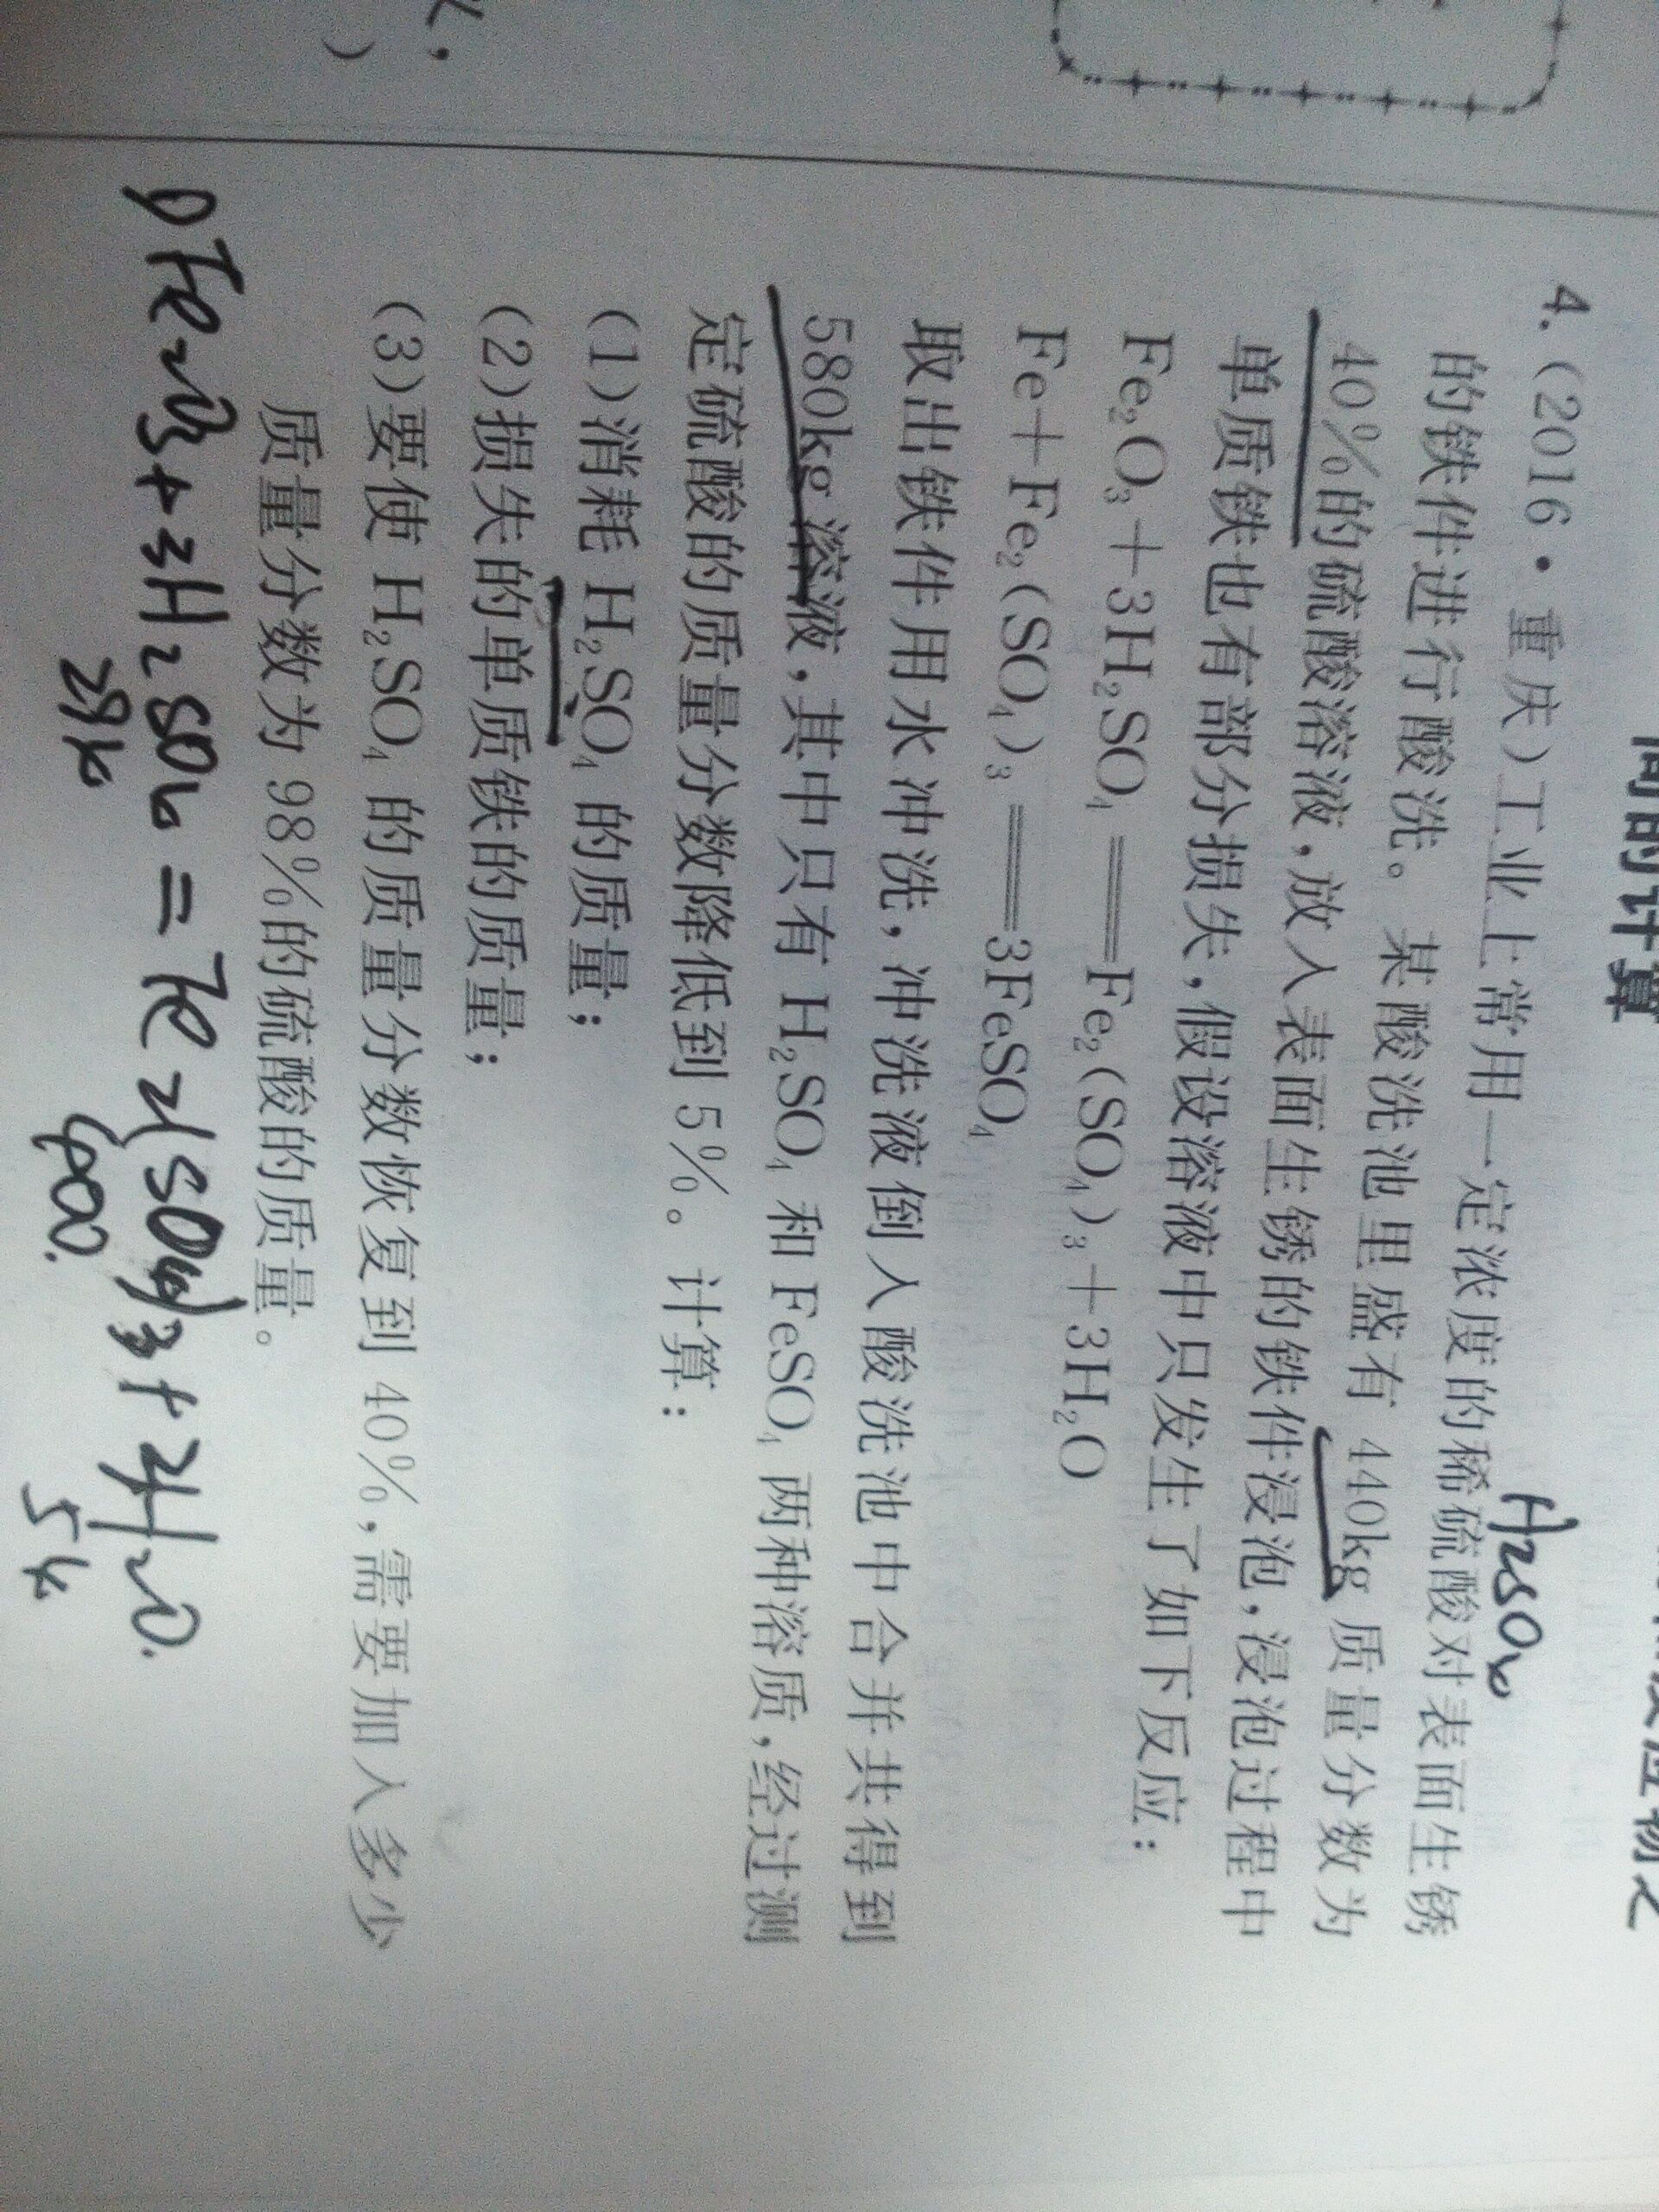 间的计算
4.(2016·重庆)工业上常用一定浓度的稀硫酸对表面生锈
H2SO4
的铁件进行酸洗。某酸洗池里盛有 440kg 质量分数为
40%的硫酸溶液,放入表面生锈的铁件浸泡,浸泡过程中
单质铁也有部分损失,假设溶液中只发生了如下反应:
Fe₂O₃+3H₂SO₄══Fe₂(SO₄)₃+3H₂O
Fe+Fe₂(SO₄)₃══3FeSO₄
取出铁件用水冲洗,冲洗液倒入酸洗池中合并共得到
580kg 溶液,其中只有 H₂SO₄ 和 FeSO₄ 两种溶质,经过测
定硫酸的质量分数降低到 5%。计算:
(1)消耗 H₂SO₄ 的质量;
(2)损失的单质铁的质量;
(3)要使 H₂SO₄ 的质量分数恢复到 40%,需要加入多少
质量分数为 98%的硫酸的质量。
Fe2O3+3H2SO4=Fe2(SO4)3+3H2O.
294 400. 54